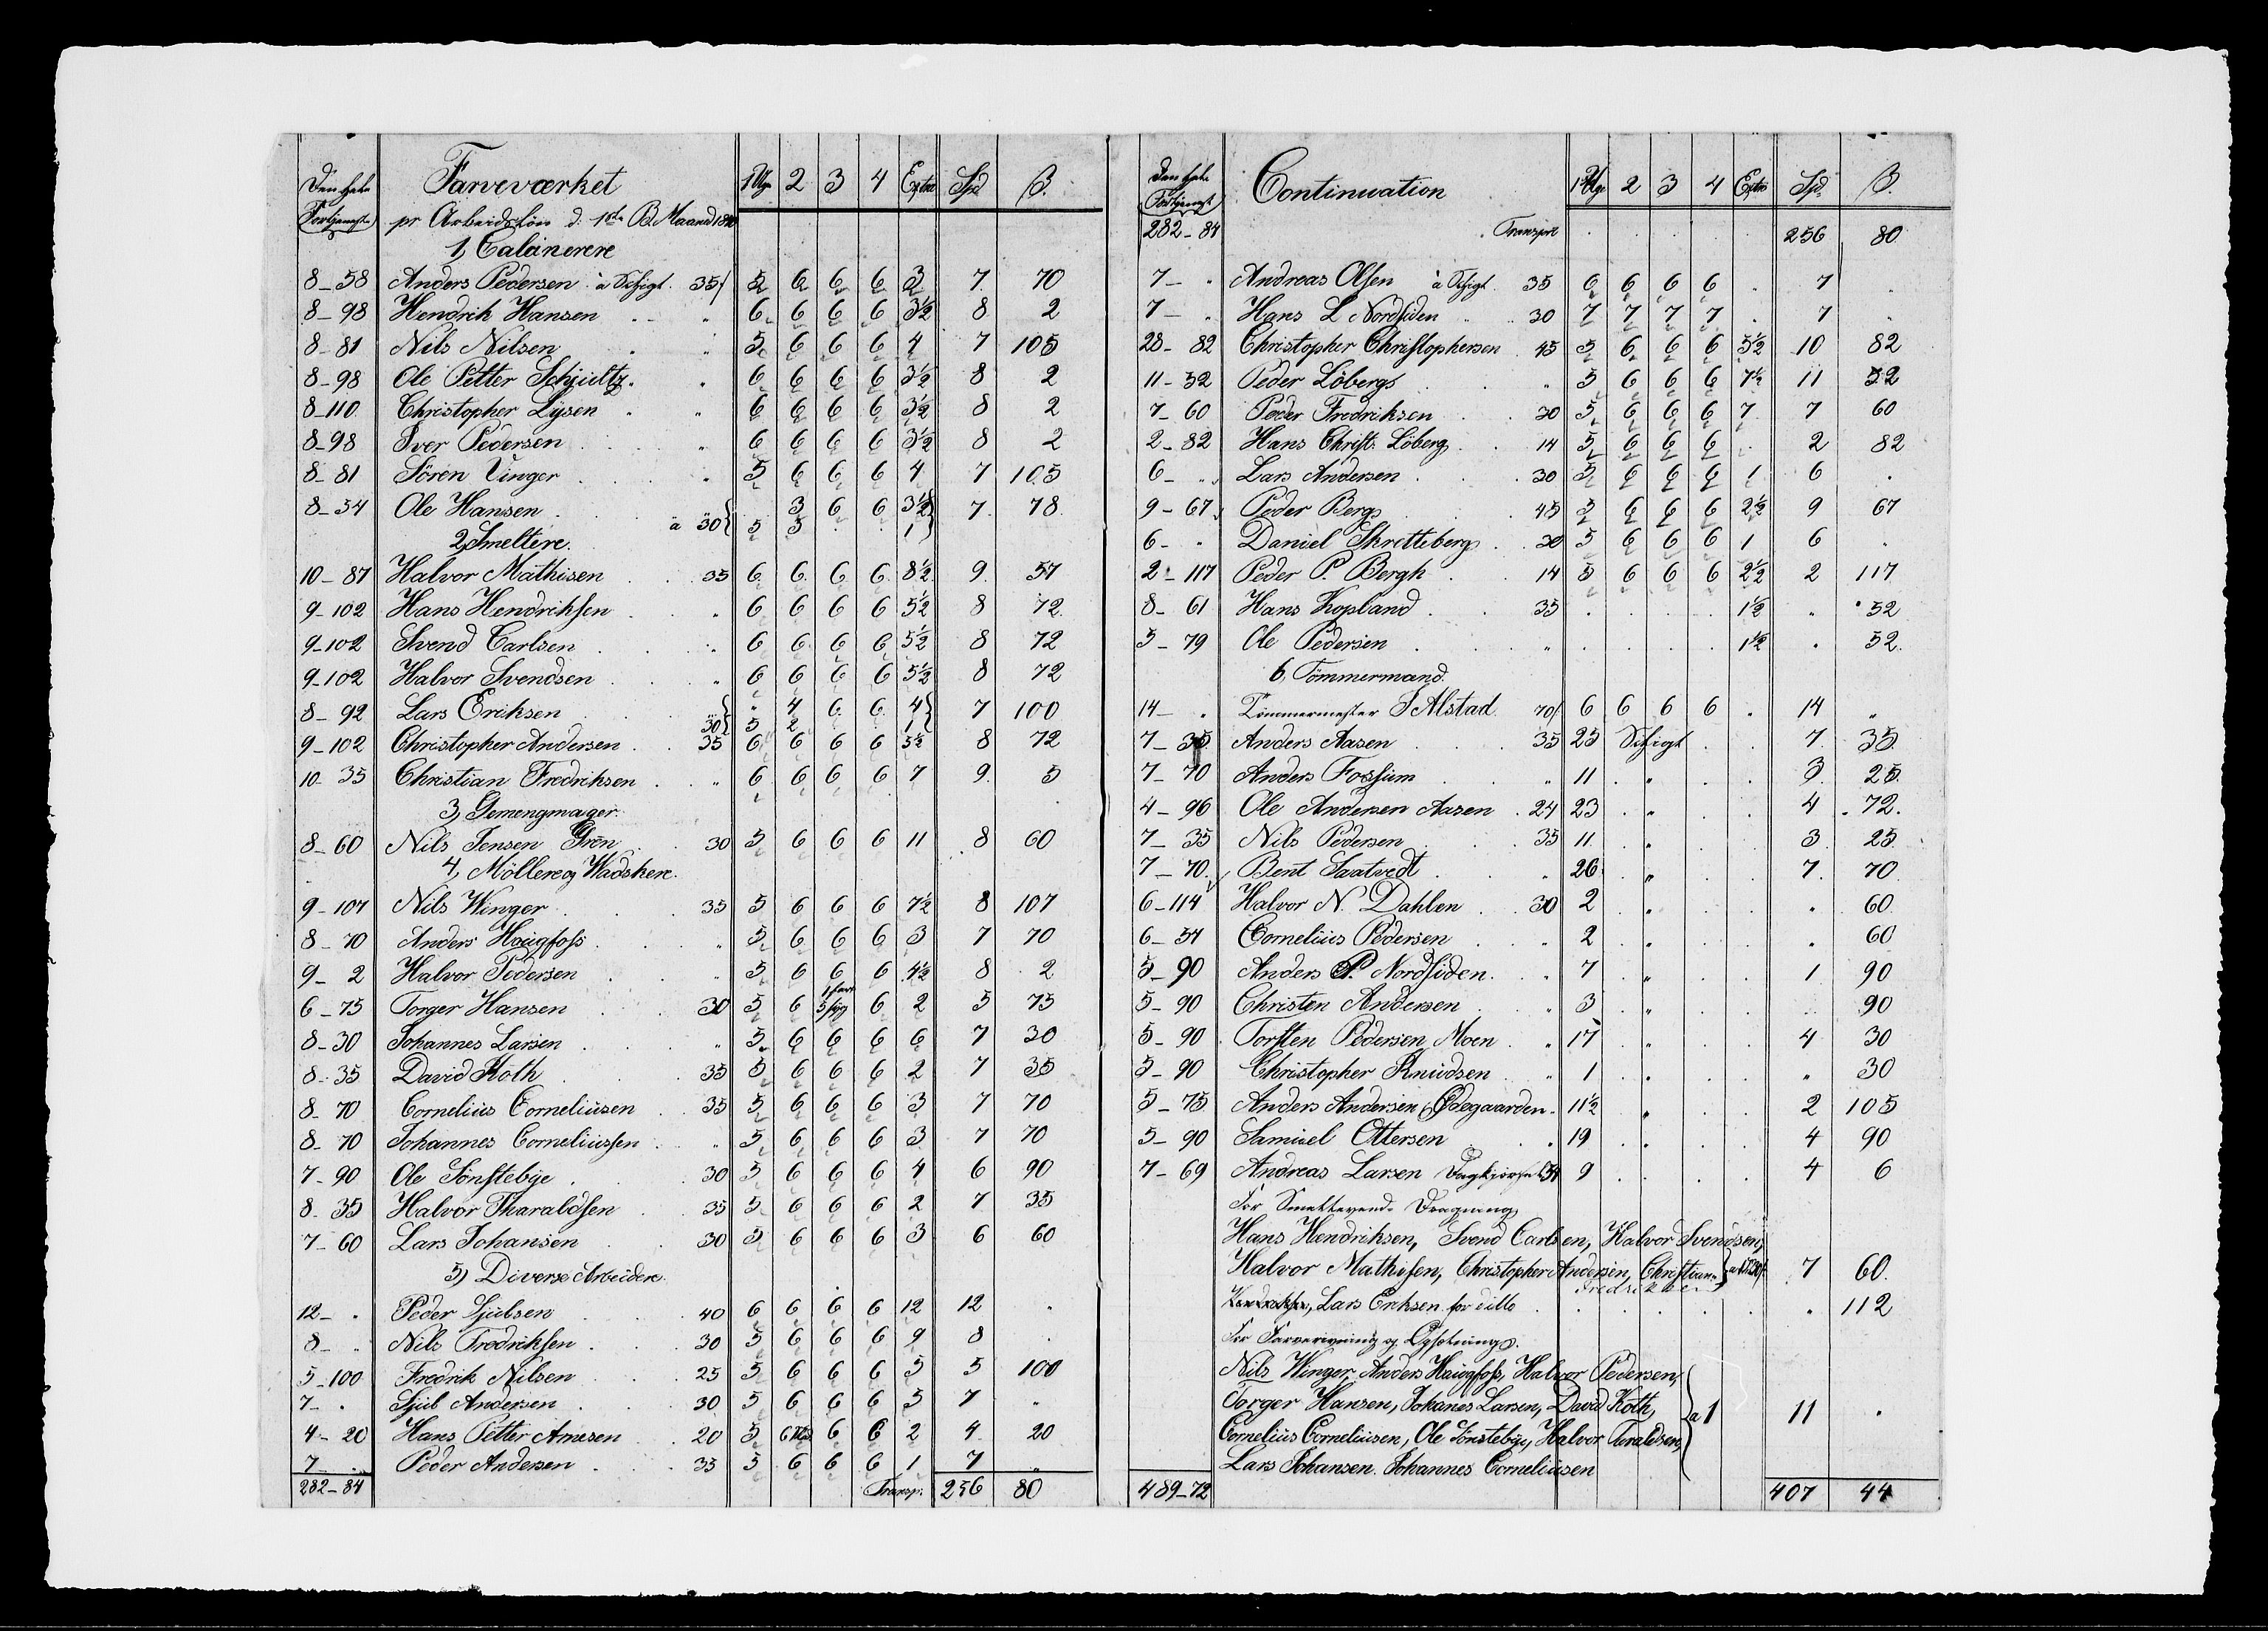 Den hele Farveværket 1 Uge 2 3 4 Extra Spd β.
Fortjeneste pr Arbeidslön d. 1ste B. Maaned
1, Calcinerere
8_58 Anders Pedersen à Schigt 35 5 6 6 6 3 7 70
8_98 Hendrik Hansen " 6 6 6 6 3½ 8 2
8_81 Nils Nilsen " 5 6 6 6 4 7 105
8_98 Ole Petter Schjultz " 6 6 6 6 3½ 8 2
8_110 Christopher Lysen " 6 6 6 6 3½ 8 2
8_98 Iver Pedersen " 6 6 6 6 3½ 8 2
8_81 Sören Vinger " 5 6 6 6 4 7 105
8_54 Ole Hansen 3 6 6 3½ 7 78
à 30 5 3 . . 1
2, Smeltere.
10_87 Halvor Mathisen 35 6 6 6 6 8½ 9 57
9_102 Hans Hendriksen " 6 6 6 6 5½ 8 72
9_102 Svend Carlsen " 6 6 6 6 5½ 8 72
9_102 Halvor Svendsen " 6 6 6 6 5½ 8 72
8_92 Lars Eriksen " " 4 6 6 4 7 100
30 5 2 1
9_102 Christopher Andersen 35 6 6 6 6 5½ 8 72
10_35 Christian Fredriksen " 6 6 6 6 7 9 5
3, Gemengmager.
8_60 Nils Jensen Grön 30 5 6 6 6 11 8 60
4, Möllere og Wadskere.
9_107 Nils Winger 35 5 6 6 6 7½ 8 107
8_70 Anders Haugfoss " 5 6 6 6 3 7 70
9_2 Halvor Pedersen " 5 6 6 6 4½ 8 2
6_75 Torger Hansen 30 5 6 5 syg 6 2 5 75
8_30 Johannes Larsen " 5 6 6 6 6 7 30
8_35 David Koth 35 5 6 6 6 2 7 35
8_70 Cornelius Corneliusen 35 5 6 6 6 3 7 70
8_70 Johannes Corneliussen " 5 6 6 6 3 7 70
7_90 Ole Sönstebye 30 5 6 6 6 4 6 90
8_35 Halvor Tharaldsen 35 5 6 6 6 2 7 35
7_60 Lars Johansen 30 5 6 6 6 3 6 60
5) Diverse Arbeidere.
12_ . Peder Sjulsen 40 6 6 6 6 12 12 .
8_ " Nils Fredriksen 30 5 6 6 6 9 8 .
5_100 Fredrik Nilsen 25 5 6 6 6 5 5 100
7_ . Sjul Andersen 30 5 6 6 6 5 7 "
4_20 Hans Petter Arnesen 20 5 6 6 6 2 4 20
7_ . Peder Andersen 35 5 6 6 6 1 7 "
282_84 Transp. 256 80
Den hele Continuation 1 Uge 2 3 4 Extra Spd. β.
Fortjenest
282_84 Transport 256 80
7_ . Andreas Olsen à Schigt 35 6 6 6 6 . 7 .
7_ . Hans L Nordsiden 30 7 7 7 7 . 7 .
28_82 Christopher Christophersen 45 5 6 6 6 5½ 10 82
11_52 Peder Löberg " 5 6 6 6 7½ 11 52
7_60 Peder Fredriksen 30 5 6 6 6 7 7 60
2_82 Hans Christ. Löberg 14 5 6 6 6 . 2 82
6_ . Lars Andersen 30 5 6 6 6 1 6 .
9_67 Peder Berg 45 5 6 6 6 2½ 9 67
6_ " Daniel Skretteberg 30 5 6 6 6 1 6 .
2_117 Peder P. Bergh 14 5 6 6 6 2½ 2 117
8_61 Hans Kopland 35 . . . . 1½ " 52
5_79 Ole Pedersen " . . . . 1½ . 52
6, Tömmermænd.
14_ " Tömmermester J Alstad 70 6 6 6 6 . 14 "
7_35 Anders Aasen 35 25 Schigt 7 35
7_70 Anders Fossum " 11 " 3 25
4_96 Ole Andersen Aasen 24 23 " 4 72.
7_35 Nils Pedersen 35 11 " 3 25
7_70 Bent Saatvedt " 26 " 7 70
6_114 Halvor N. Dahlen 30 2 " . 60
6_54 Cornelius Pedersen " 2 " . 60
5_90 Anders P. Nordsiden " 7 " 1 90
5_90 Christen Andersen " 3 " 90
5_90 Torsten Pedersen Moen " 17 " 4 30
5_90 Christopher Knudsen " 1 " " 30
5_75 Anders Andersen Ödegaarden 11½ " 2 105
5_90 Samuel Ottersen " 19 . 4 90
7_69 Andreas Larsen 54 9 . 4 6
For Dragning
Hans Hendriksen, Svend Carlsen, Halvor Svendsen,
Halvor Mathisen, Christopher Andersen, Christian 7 60.
Fredriksen
Lars Eriksen for ditto " 112
For Farverivning og
Nils Winger, Anders Haugfoss, Halvor Pedersen,
Torger Hansen, Johannes Larsen, David Koth, a 1 11 .
Cornelius Corneliusen, Ole Sönstebye, Halvor Taraldsen,
Lars Johansen. Johannes Corneliusen
489_72 407 44